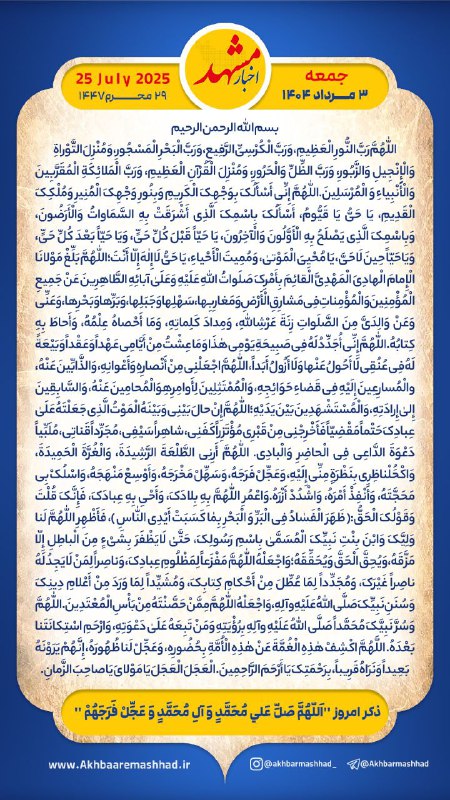 جمعه
۳ مرداد ۱۴۰۴
اخبار مشهد
25 July 2025
۲۹ محرم ۱۴۴۷
بسم الله الرحمن الرحیم
اَللّٰهُمَّ رَبَّ النُّورِ الْعَظِیمِ، وَرَبَّ الْکُرْسِیِّ الرَّفِیعِ، وَرَبَّ الْبَحْرِ الْمَسْجُورِ، وَمُنْزِلَ التَّوْراةِ
وَالْإِنْجِیلِ وَالزَّبُورِ، وَرَبَّ الظِّلِّ وَالْحَرُورِ، وَمُنْزِلَ الْقُرْآنِ الْعَظِیمِ، وَرَبَّ الْمَلائِکَةِ الْمُقَرَّبِینَ
وَالْأَنْبِیاءِ وَالْمُرْسَلِینَ. اللّٰهُمَّ إِنِّی أَسْأَلُکَ بِوَجْهِکَ الْکَرِیمِ وَبِنُورِ وَجْهِکَ الْمُنِیرِ وَمُلْکِکَ
الْقَدِیمِ، یَا حَیُّ یَا قَیُّومُ، أَسْأَلُکَ بِاسْمِکَ الَّذِی أَشْرَقَتْ بِهِ السَّمَاوَاتُ وَالْأَرَضُونَ،
وَبِاسْمِکَ الَّذِی یَصْلَحُ بِهِ الْأَوَّلُونَ وَالْآخِرُونَ، یَا حَیّاً قَبْلَ کُلِّ حَیٍّ، وَیَا حَیّاً بَعْدَ کُلِّ حَیٍّ،
وَیَا حَیّاً حِینَ لَا حَیَّ، یَا مُحْیِیَ الْمَوْتىٰ، وَمُمِیتَ الْأَحْیاءِ، یَا حَیُّ لَا إِلٰهَ إِلّا أَنْتَ؛ اللّٰهُمَّ بَلِّغْ مَوْلانَا
الْإِمامَ الْهادِیَ الْمَهْدِیَّ الْقائِمَ بِأَمْرِکَ صَلَواتُ اللّٰهِ عَلَیْهِ وَعَلَىٰ آبائِهِ الطَّاهِرِینَ عَنْ جَمِیعِ
الْمُؤْمِنِینَ وَالْمُؤْمِناتِ فِی مَشارِقِ الْأَرْضِ وَمَغارِبِها، سَهْلِها وَجَبَلِها، وَبَرِّها وَبَحْرِها، وَعَنِّی
وَعَنْ وَالِدَیَّ مِنَ الصَّلَواتِ زِنَةَ عَرْشِ اللّٰهِ، وَمِدادَ کَلِماتِهِ، وَمَا أَحْصاهُ عِلْمُهُ، وَأَحاطَ بِهِ
کِتابُهُ. اللّٰهُمَّ إِنِّی أُجَدِّدُ لَهُ فِی صَبِیحَةِ یَوْمِی هٰذَا وَمَا عِشْتُ مِنْ أَیَّامِی عَهْداً وَعَقْداً وَبَیْعَةً
لَهُ فِی عُنُقِی لَا أَحُولُ عَنْها وَلَا أَزُولُ أَبَداً. اللّٰهُمَّ اجْعَلْنِی مِنْ أَنْصارِهِ وَأَعْوانِهِ، وَالذَّابِّینَ عَنْهُ،
وَالْمُسارِعِینَ إِلَیْهِ فِی قَضاءِ حَوَائِجِهِ، وَالْمُمْتَثِلِینَ لِأَوامِرِهِ وَالْمُحامِینَ عَنْهُ، وَالسَّابِقِینَ
إِلىٰ إِرادَتِهِ، وَالْمُسْتَشْهَدِینَ بَیْنَ یَدَیْهِ؛ اللّٰهُمَّ إِنْ حالَ بَیْنِی وَبَیْنَهُ الْمَوْتُ الَّذِی جَعَلْتَهُ عَلَىٰ
عِبادِکَ حَتْماً مَقْضِیّاً فَأَخْرِجْنِی مِنْ قَبْرِی مُؤْتَزِراً کَفَنِی، شاهِراً سَیْفِی، مُجَرِّداً قَناتِی، مُلَبِّیاً
دَعْوَةَ الدَّاعِی فِی الْحاضِرِ وَالْبادِی. اللّٰهُمَّ أَرِنِی الطَّلْعَةَ الرَّشِیدَةَ، وَالْغُرَّةَ الْحَمِیدَةَ،
وَاکْحُلْ ناظِرِی بِنَظْرَةٍ مِنِّی إِلَیْهِ، وَعَجِّلْ فَرَجَهُ، وَسَهِّلْ مَخْرَجَهُ، وَأَوْسِعْ مَنْهَجَهُ، وَاسْلُکْ بِی
مَحَجَّتَهُ، وَأَنْفِذْ أَمْرَهُ، وَاشْدُدْ أَزْرَهُ. وَاعْمُرِ اللّٰهُمَّ بِهِ بِلادَکَ، وَأَحْیِ بِهِ عِبادَکَ، فَإِنَّکَ قُلْتَ
وَقَوْلُکَ الْحَقُّ: ﴿ظَهَرَ الْفَسادُ فِی الْبَرِّ وَ الْبَحْرِ بِمَا کَسَبَتْ أَیْدِی النَّاسِ﴾، فَأَظْهِرِ اللّٰهُمَّ لَنا
وَلِیَّکَ وَابْنَ بِنْتِ نَبِیِّکَ الْمُسَمَّىٰ بِاسْمِ رَسُولِکَ، حَتَّىٰ لَا یَظْفَرَ بِشَیْءٍ مِنَ الْباطِلِ إِلّا
مَزَّقَهُ، وَیُحِقَّ الْحَقَّ وَیُحَقِّقَهُ؛ وَاجْعَلْهُ اللّٰهُمَّ مَفْزَعاً لِمَظْلُومِ عِبادِکَ، وَناصِراً لِمَنْ لَا یَجِدُ لَهُ
ناصِراً غَیْرَکَ، وَمُجَدِّداً لِمَا عُطِّلَ مِنْ أَحْکامِ کِتابِکَ، وَمُشَیِّداً لِمَا وَرَدَ مِنْ أَعْلامِ دِینِکَ
وَسُنَنِ نَبِیِّکَ صَلَّى اللّٰهُ عَلَیْهِ وَآلِهِ، وَاجْعَلْهُ اللّٰهُمَّ مِمَّنْ حَصَّنْتَهُ مِنْ بَأْسِ الْمُعْتَدِینَ. اللّٰهُمَّ
وَسُرَّ نَبِیَّکَ مُحَمَّداً صَلَّى اللّٰهُ عَلَیْهِ وَآلِهِ بِرُؤْیَتِهِ وَمَنْ تَبِعَهُ عَلَىٰ دَعْوَتِهِ، وَارْحَمِ اسْتِکانَتَنا
بَعْدَهُ. اللّٰهُمَّ اکْشِفْ هٰذِهِ الْغُمَّةَ عَنْ هٰذِهِ الْأُمَّةِ بِحُضُورِهِ، وَعَجِّلْ لَنا ظُهُورَهُ، إِنَّهُمْ یَرَوْنَهُ
بَعِیداً وَنَرَاهُ قَرِیباً، بِرَحْمَتِکَ یَا أَرْحَمَ الرَّاحِمِینَ. الْعَجَلَ الْعَجَلَ یَا مَوْلایَ یَا صاحِبَ الزَّمانِ.
ذکر امروز "اَللّهُمَّ صَلِّ عَلي مُحَمَّدٍ وَ آلِ مُحَمَّدٍ وَ عَجِّلْ فَرَجَهُمْ"
www.Akhbaaremashhad.ir
@akhbarmashhad_
@Akhbarmashhad